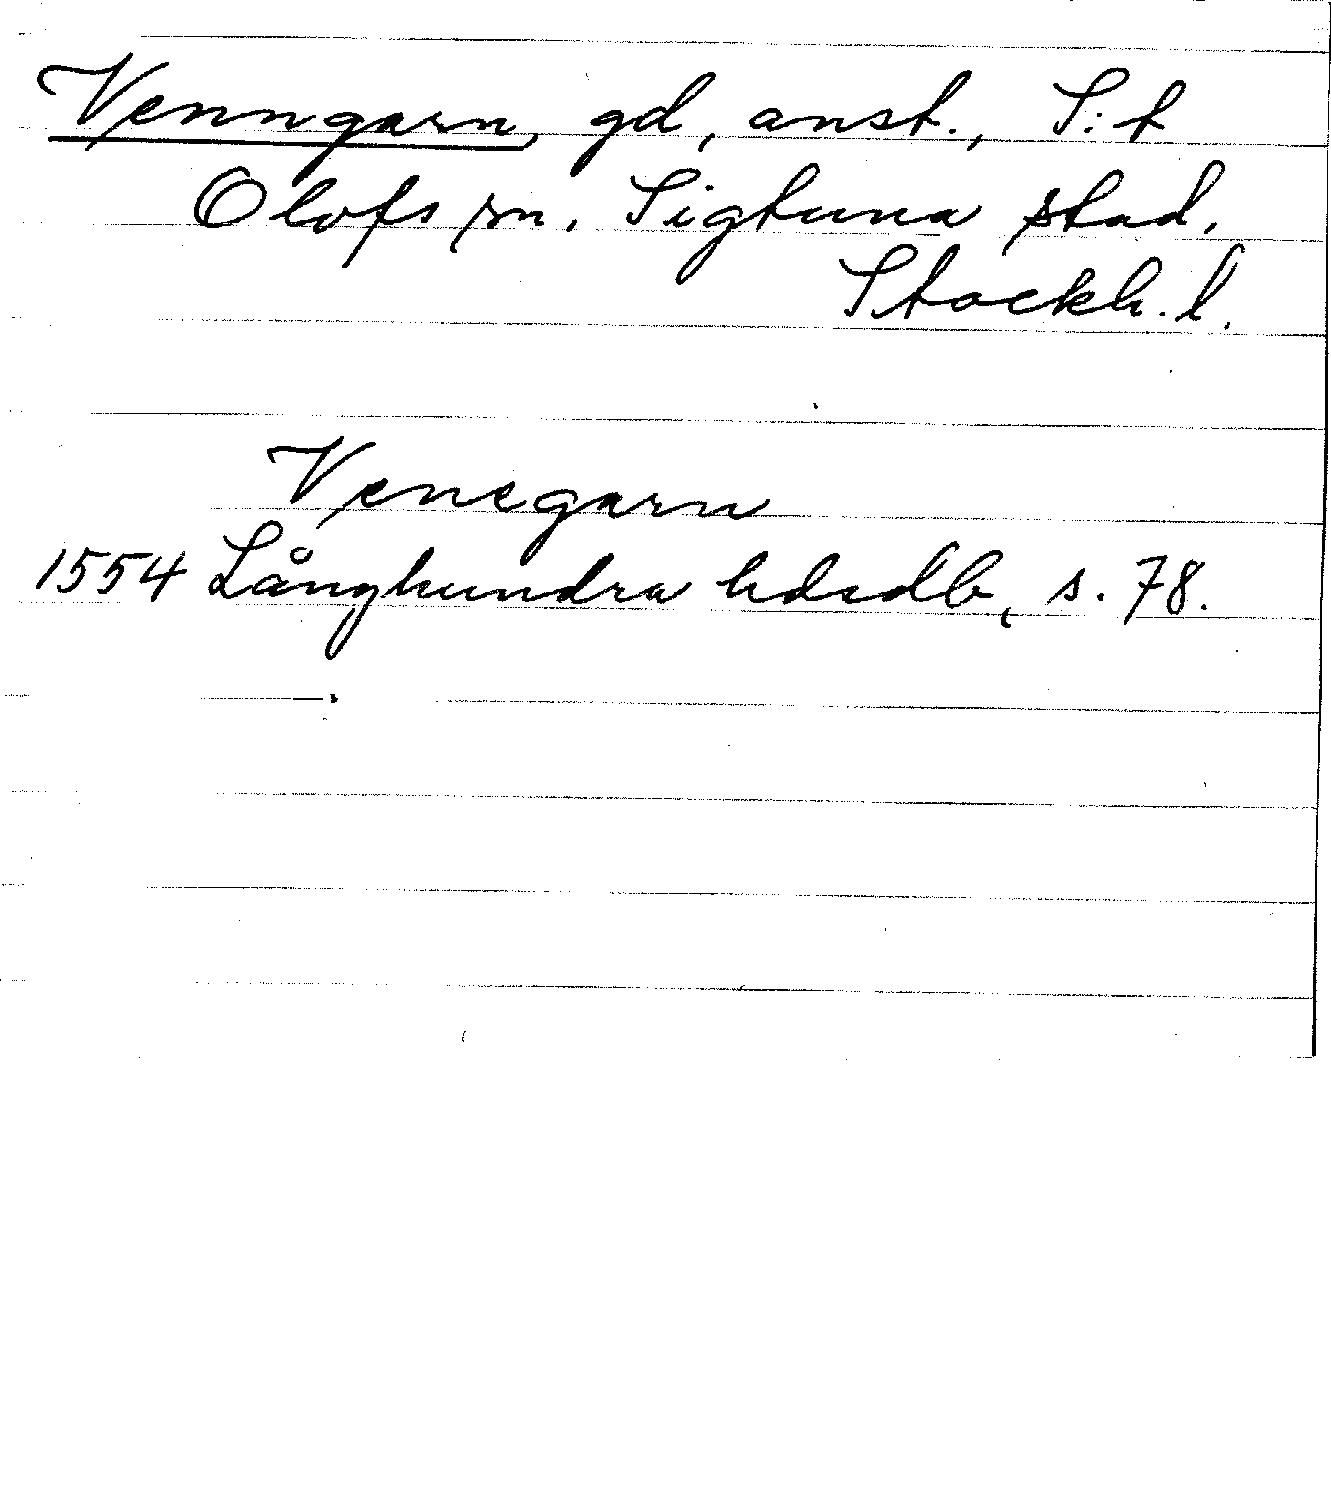 Venngarn, gd, anst., S:t
Olofs sn. Sigtuna stad.
Stockh. l.
Venegarn
1554 Långhundra hdsdb, s. 78.